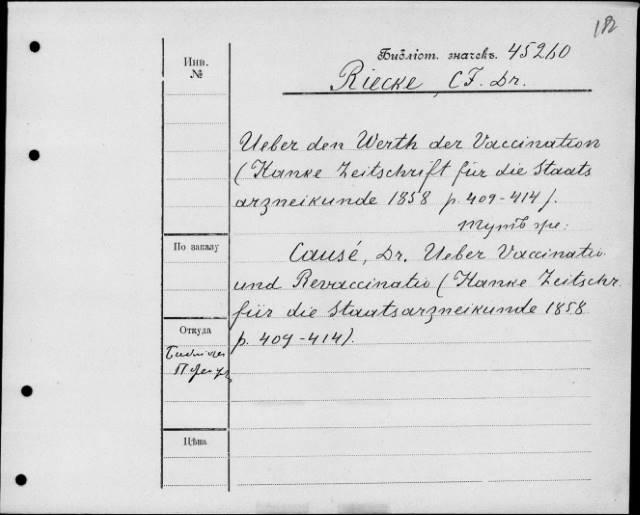 182
Библіот. значекъ. 45260
Riecke, CF. Dr.
Инв.
№
Ueber den Werth der Vaccination
(Hanke Zeitschrift für die Staats
arzneikunde 1858 p. 409-414).
Тутъ же:
По заказу
Causé, Dr. Ueber Vaccinatio
und Revaccinatio (Hanke Zeitschr.
für die Staatsarzneikunde 1858
p. 409-414).
Откуда
Цѣна